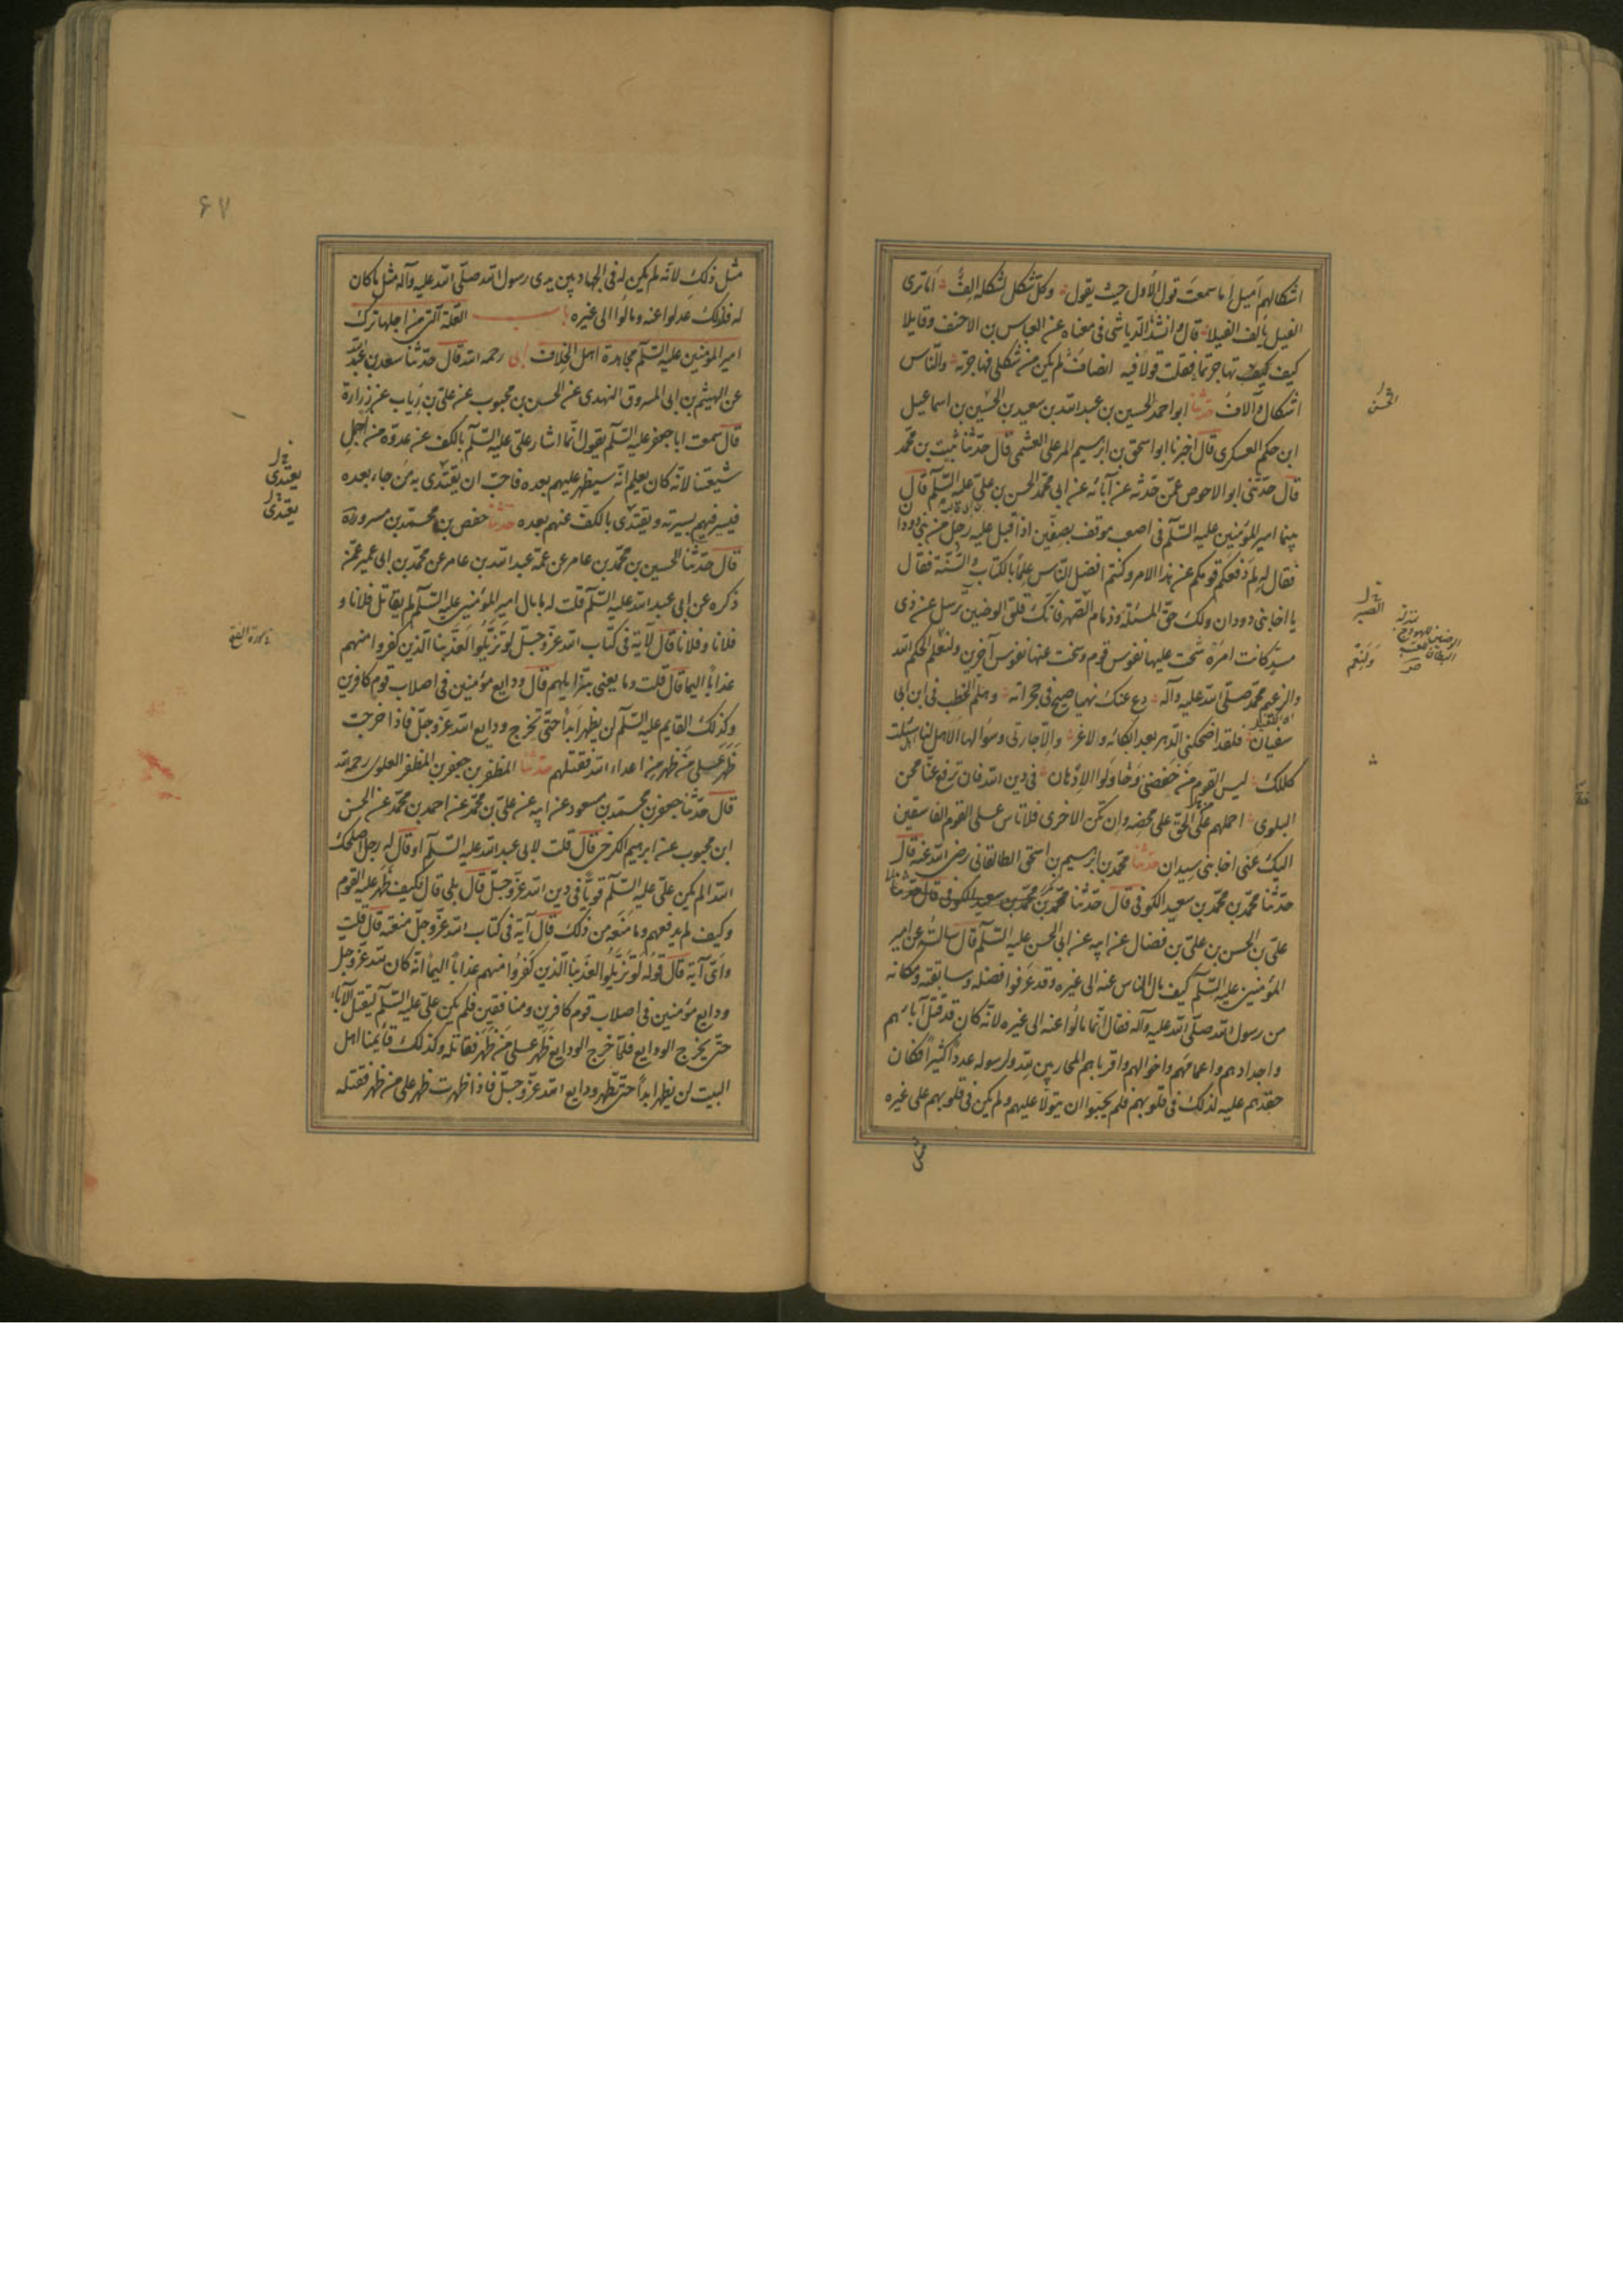 اشكالهم اميل اما سمعت قول الأول حيث يقول وكل شكل لشكله الف اما ترى
الفيل يألف الفيلا قال وانشدنا الرياشي في معناه عن العباس بن الاحنف وقايلا
كيف تهاجرتما فقلت قولا فيه انصاف لم يكن من شكلي فهاجرته والناس
اشكال وآلاف حدثنا ابو احمد الحسين بن عبد الله بن سعيد بن الحسين بن اسماعيل
ابن حكم العسكري قال اخبرنا ابو اسحق بن ابرهيم المرعلى العشمى قال حدثنا ثبيت بن محمد
قال حدثني ابو الاحوص عمن حدثه عن آبائه عن ابي محمد الحسن بن علي عليه السلم قال
بينما امير المؤمنين عليه السلم في اصعب موقف بصفين اذ اقبل عليه رجل من بني دودان
فقال له لم دفعكم قومكم عن هذا الامر وكنتم افضل الناس علما بالكتاب والسنة فقال
يا اخا بني دودان ولك حق المسئلة وذمام الصهر فانك قلق الوضين ترسل عن ذي
مسد كانت امرة شحت عليها نفوس قوم وسخت عنها نفوس آخرين ولنعم الحكم الله
والزعيم محمد صلى الله عليه وآله دع عنك نهبا صيح في حجراته وهلم الخطب في ابن ابي
سفيان فلقد اضحكني الدهر بعد ابكائه ولا غرو الا جارتي وسؤالها الا هل لنا اهل سئلت
كذلك ليس القوم من خفضني وحاولوا الادهان في دين الله فان ترفع عنا محن
البلوى احملهم من الحق على محضه وان تكن الاخرى فلا تاس على القوم الفاسقين
اليك عني اخا بني سيدان حدثنا محمد بن ابرهيم بن اسحق الطالقاني رضي الله عنه قال
حدثنا محمد بن محمد بن سعيد الكوفي قال حدثنا محمد بن محمد بن سعيد الكوفي قال حدثنا
علي بن الحسن بن علي بن فضال عن ابيه عن ابي الحسن عليه السلم قال سالته عن امير
المؤمنين عليه السلم كيف مال الناس عنه الى غيره وقد عرفوا فضله وسابقته ومكانه
من رسول الله صلى الله عليه وآله فقال انما مالوا عنه الى غيره لانه كان قد قتل آبائهم
واجدادهم واعمامهم واخوالهم واقرباهم المحاربين لله ولرسوله عددا كثيرا فكان
حقدهم عليه لذلك في قلوبهم فلم يحبوا ان يتولا عليهم ولم يكن في قلوبهم على غيره
مثل
الحسن
الصبر
ولنعم
۶۷
مثل ذلك لانه لم يكن له في الجهاد بين يدي رسول الله صلى الله عليه وآله مثل ما كان
له فلذلك عدلوا عنه ومالوا الى غيره باب العلة التي من اجلها ترك
امير المؤمنين عليه السلم مجاهدة اهل الخلاف ابي رحمه الله قال حدثنا سعد بن عبد الله
عن الهيثم بن ابي المسروق النهدي عن الحسن بن محبوب عن علي بن رياب عن زرارة
قال سمعت ابا جعفر عليه السلم يقول انما اشار علي عليه السلم بالكف عن عدوه من اجل
شيعتنا لانه كان يعلم انه سيظهر عليهم بعده فاحب ان يقتدى به من جاء بعده
فيسير فيهم بسيرته ويقتدى بالكف عنهم بعده حدثنا حفص بن محمد بن مسرور ره
قال حدثنا الحسين بن محمد بن عامر عن عمه عبد الله بن عامر عن محمد بن ابي عمير عمن
ذكره عن ابي عبد الله عليه السلم قلت له ما بال امير المؤمنين عليه السلم لم يقاتل فلانا و
فلانا وفلانا قال لآية في كتاب الله عز وجل لو تزيلوا لعذبنا الذين كفروا منهم
عذابا اليما قال قلت وما يعني بتزايلهم قال ودايع مؤمنين في اصلاب قوم كافرين
وكذلك القايم عليه السلم لن يظهر ابدا حتى تخرج ودايع الله عز وجل فاذا خرجت
ظهر على من ظهر من اعداء الله فقتلهم حدثنا المظفر بن جعفر بن المظفر العلوي رحمه الله
قال حدثنا جعفر بن محمد بن مسعود عن ابيه عن علي بن محمد عن احمد بن محمد عن الحسن
ابن محبوب عن ابرهيم الكرخي قال قلت لابي عبد الله عليه السلم او قال له رجل اصلحك
الله الم يكن علي عليه السلم قويا في دين الله عز وجل قال بلى قال فكيف ظهر عليه القوم
وكيف لم يدفعهم وما منعه من ذلك قال آية في كتاب الله عز وجل منعته قال قلت
واى آية قال قوله لو تزيلوا لعذبنا الذين كفروا منهم عذابا اليما انه كان لله عز وجل
ودايع مؤمنين في اصلاب قوم كافرين ومنافقين فلم يكن علي عليه السلم ليقتل الآباء
حتى يخرج الودايع فلما خرج الودايع ظهر على من ظهر فقاتله وكذلك قائمنا اهل
البيت لن يظهر ابدا حتى تظهر ودايع الله عز وجل فاذا ظهرت ظهر على من ظهر فقتله
يقتدى
يقتدى
سورة الفتح